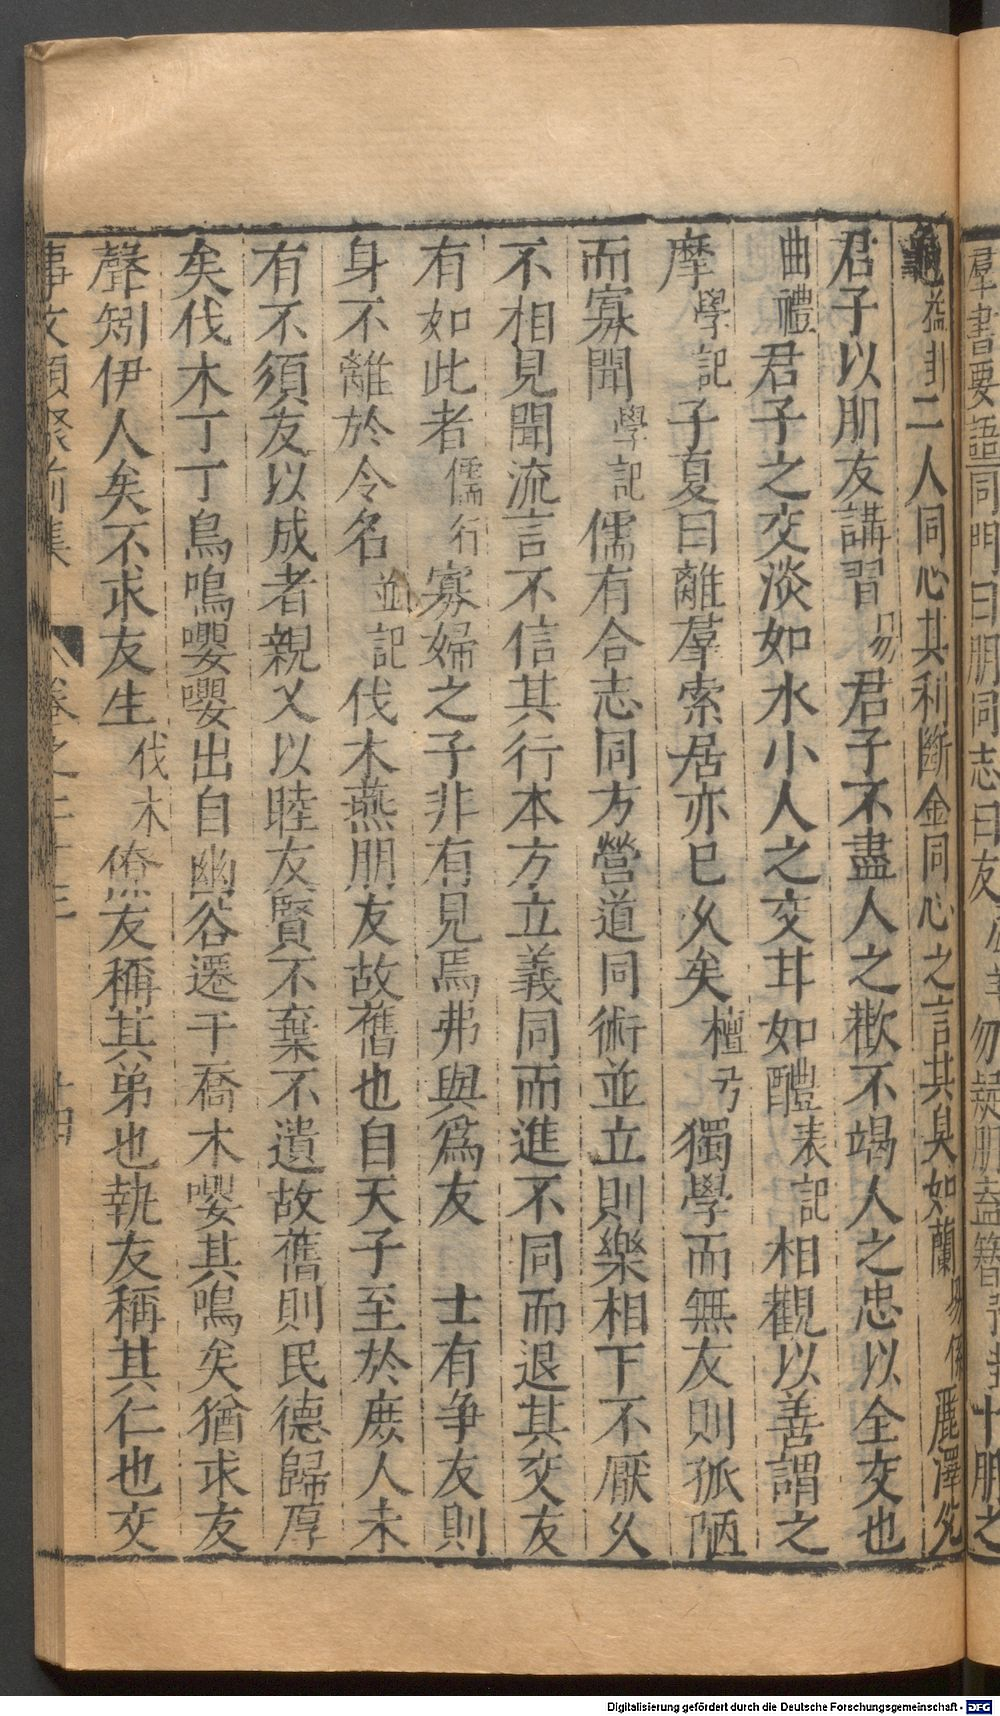 羣書要語同門曰朋同志曰友 勿疑朋盍簪 十朋之
龜益卦二人同心其利斷金同心之言其臭如蘭易係麗澤兊
君子以朋友講習易君子不盡人之歡不竭人之忠以全交也
曲禮君子之交淡如水小人之交甘如醴表記相觀以善謂之
摩學記子夏曰離羣索居亦已久矣檀弓獨學而無友則孤陋
而寡聞學記儒有合志同方營道同術並立則樂相下不厭久
不相見聞流言不信其行本方立義同而進不同而退其交友
有如此者儒行寡婦之子非有見焉弗與爲友 士有争友則
身不離於令名並記伐木燕朋友故舊也自天子至於庶人未
有不須友以成者親乂以睦友賢不棄不遺故舊則民德歸厚
矣伐木丁丁鳥鳴嚶嚶出自幽谷遷于喬木嚶其鳴矣猶求友
聲矧伊人矣不求友生伐木僚友稱其弟也執友稱其仁也交
事文類聚前集 卷之二十三 十四
Digitalisierung gefördert durch die Deutsche Forschungsgemeinschaft - DFG